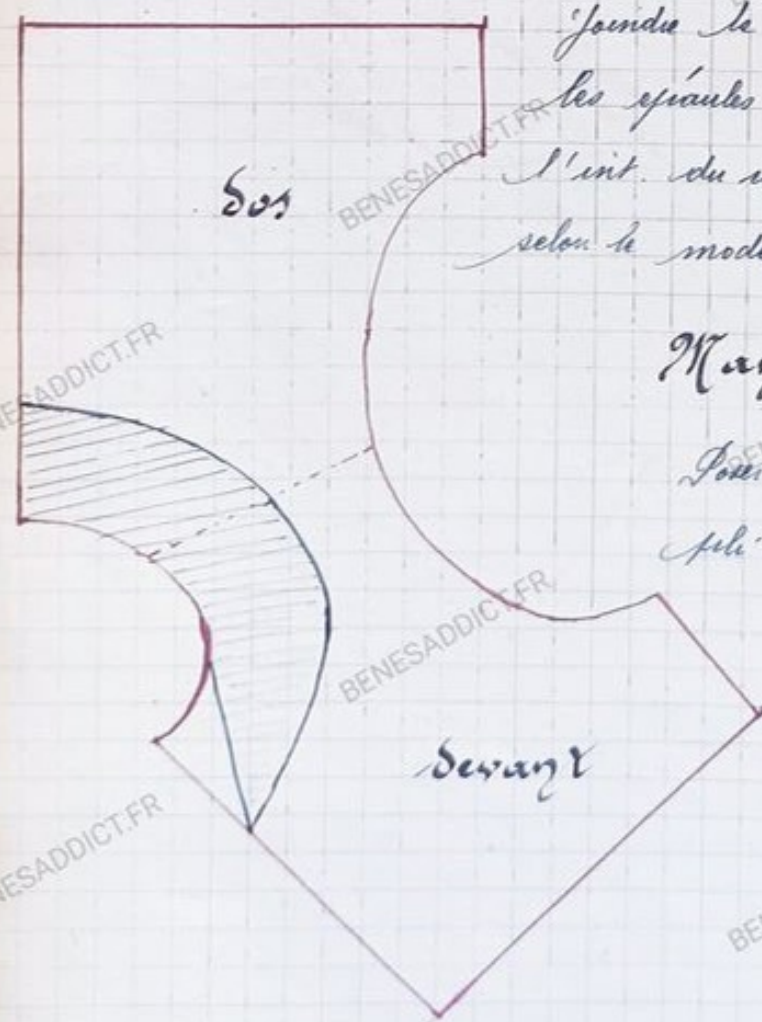 Joindre le
les épaules
l'int. du
selon le
Dos
Poser
pli
Devant
BENESADDICT.FR
BENESADDICT.FR
BENESADDICT.FR
BENESADDICT.FR